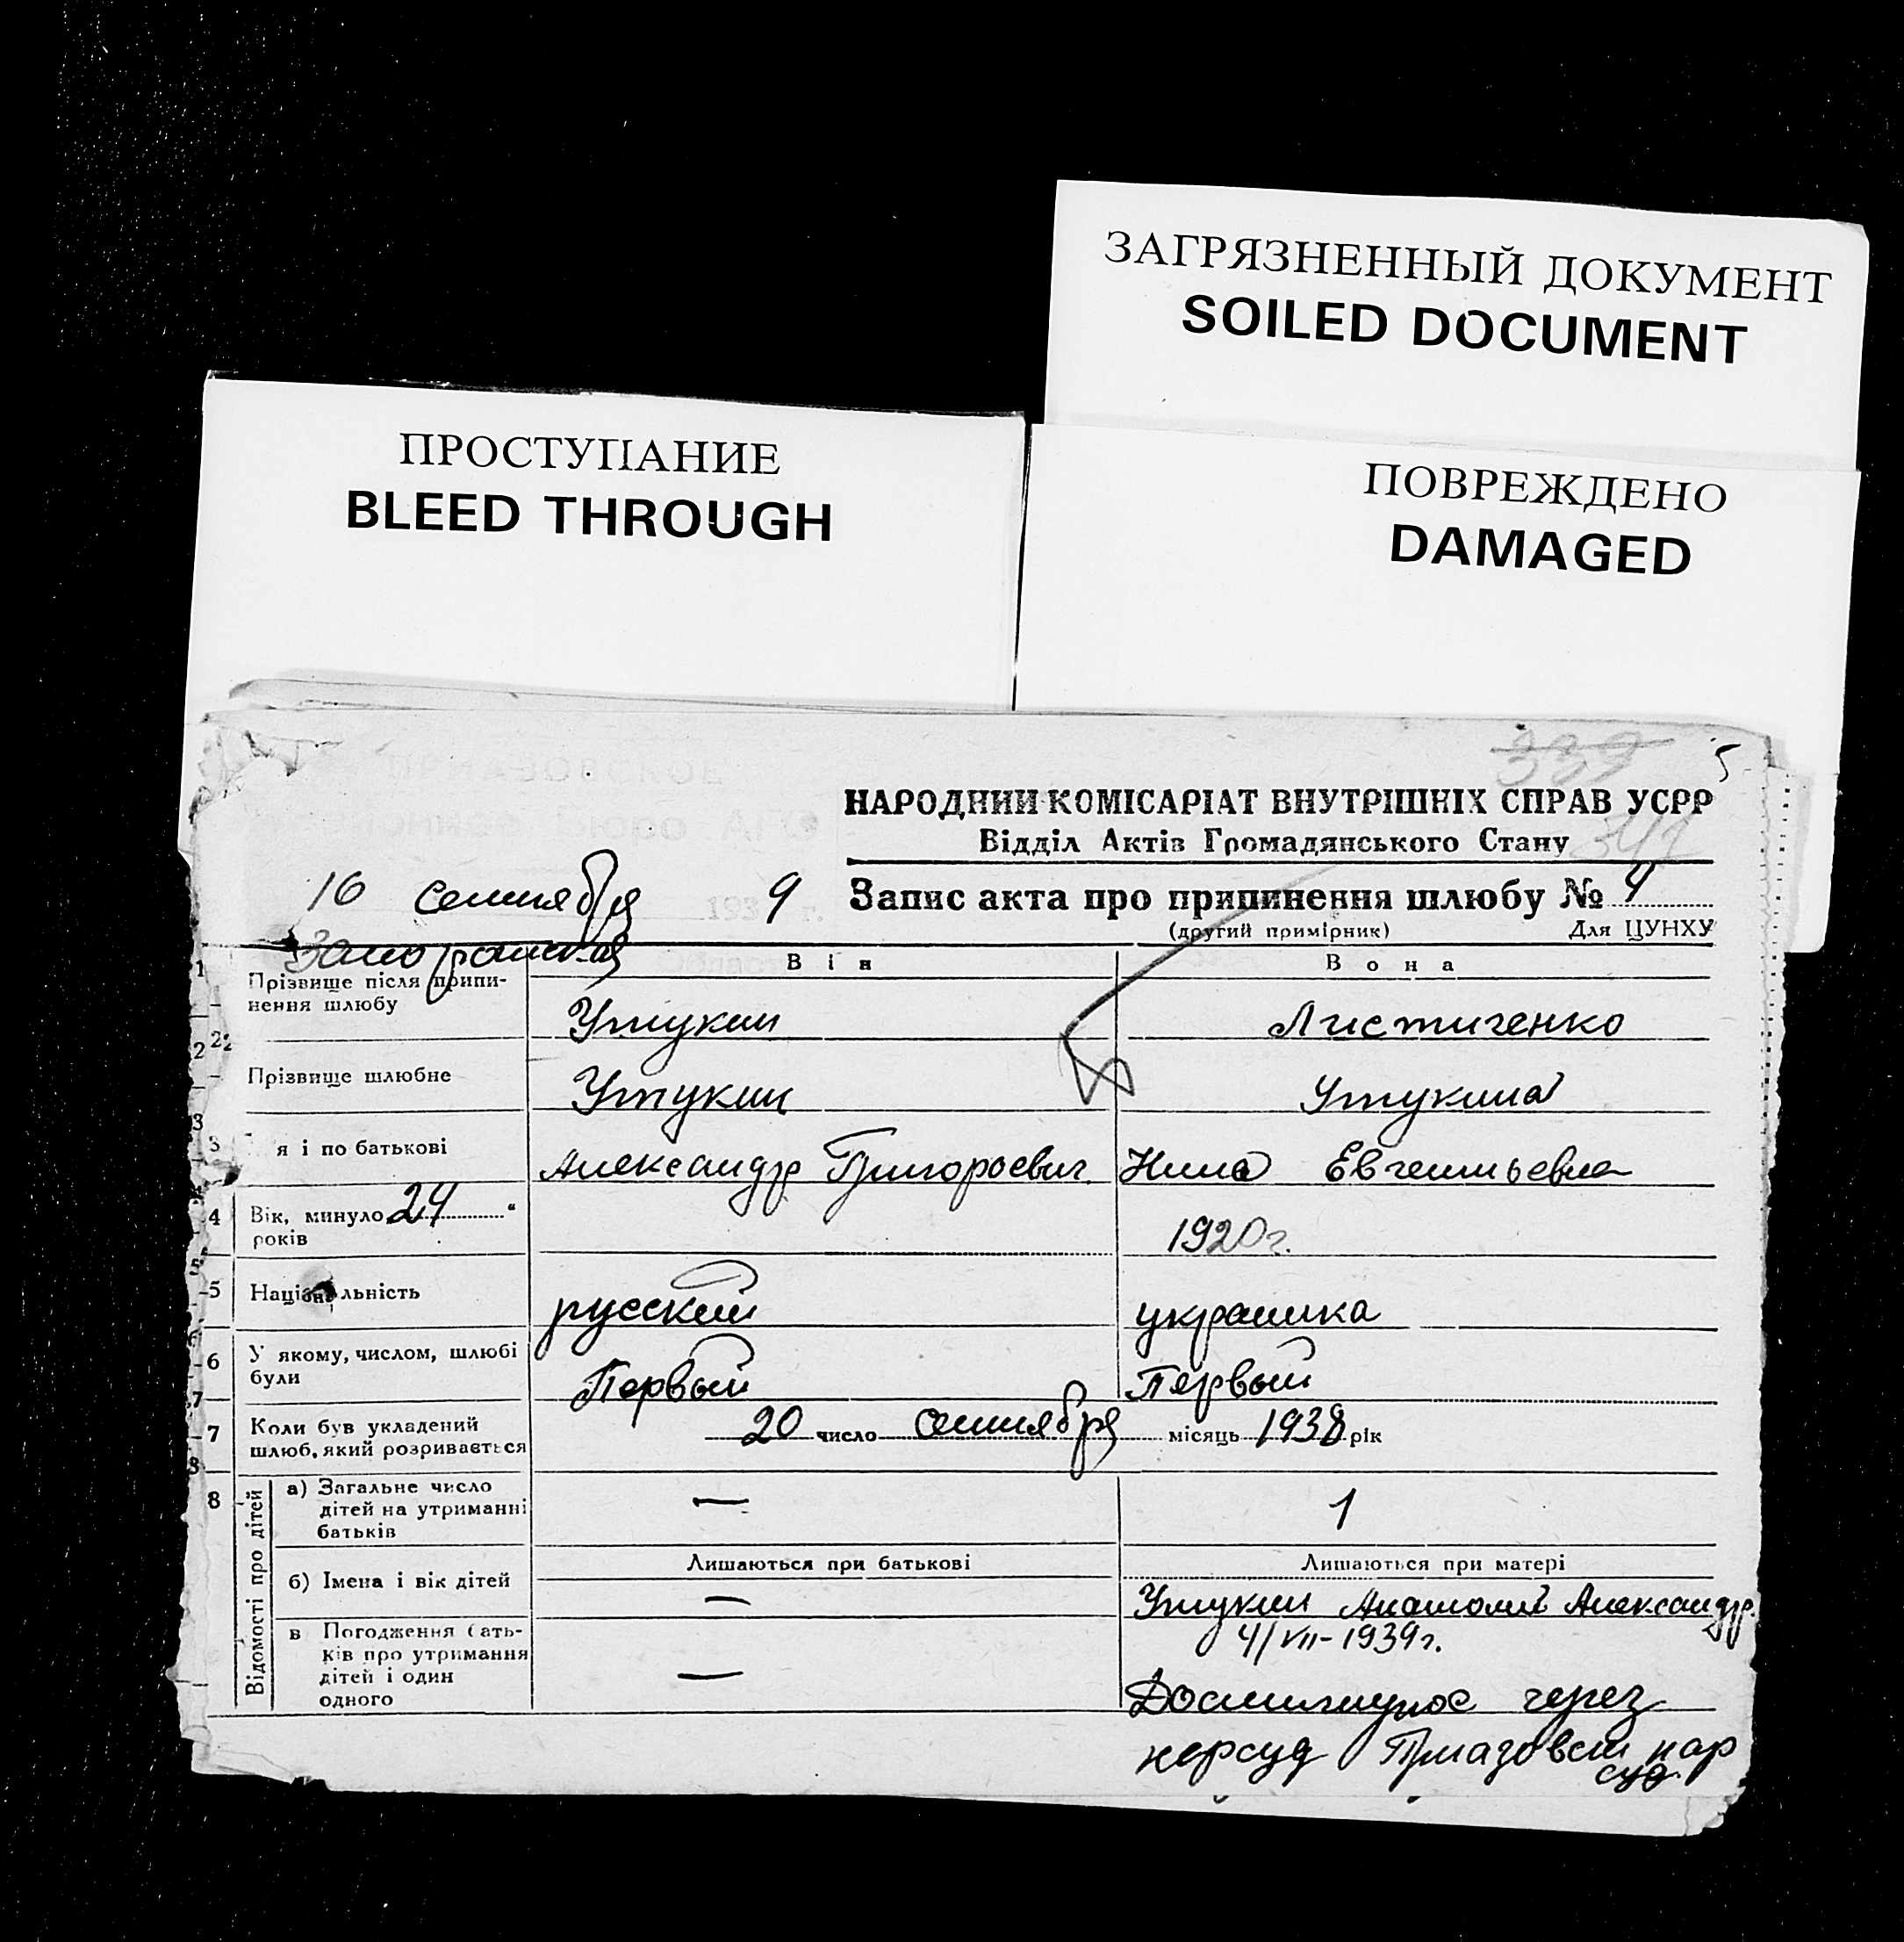 ЗАГРЯЗНЕННЫЙ ДОКУМЕНТ
SOILED DOCUMENT
ПРОСТУПАНИЕ
BLEED THROUGH
ПОВРЕЖДЕНО
DAMAGED
339 5
НАРОДНИЙ КОМІСАРІАТ ВНУТРІШНІХ СПРАВ УСРР
Відділ Актів Громадянського Стану
16 сентября 1939 г.
Запис акта про припинення шлюбу № 4
(другий примірник) Для ЦУНХУ
1 Прізвище після припинення шлюбу
Він Вона
Утукин Листиченко
2 Прізвище шлюбне Утукин Утукина
3 я і по батькові Александр Григорьевич Нина Евгеньевна
4 Вік, минуло 24 років 1920 г.
5 Національність русский украинка
6 У якому, числом, шлюбі були Первый Первый
7 Коли був укладений шлюб, який розривається 20 число сентября місяць 1938 рік
8 Відомості про дітей
а) Загальне число дітей на утриманні батьків — 1
Лишаються при батькові Лишаються при матері
б) Імена і вік дітей — Утукин Анатолий Александр.
4/VII-1939 г.
в Погодження батьків про утримання дітей і один одного —
через
нарсуд Приазовск нар
суд